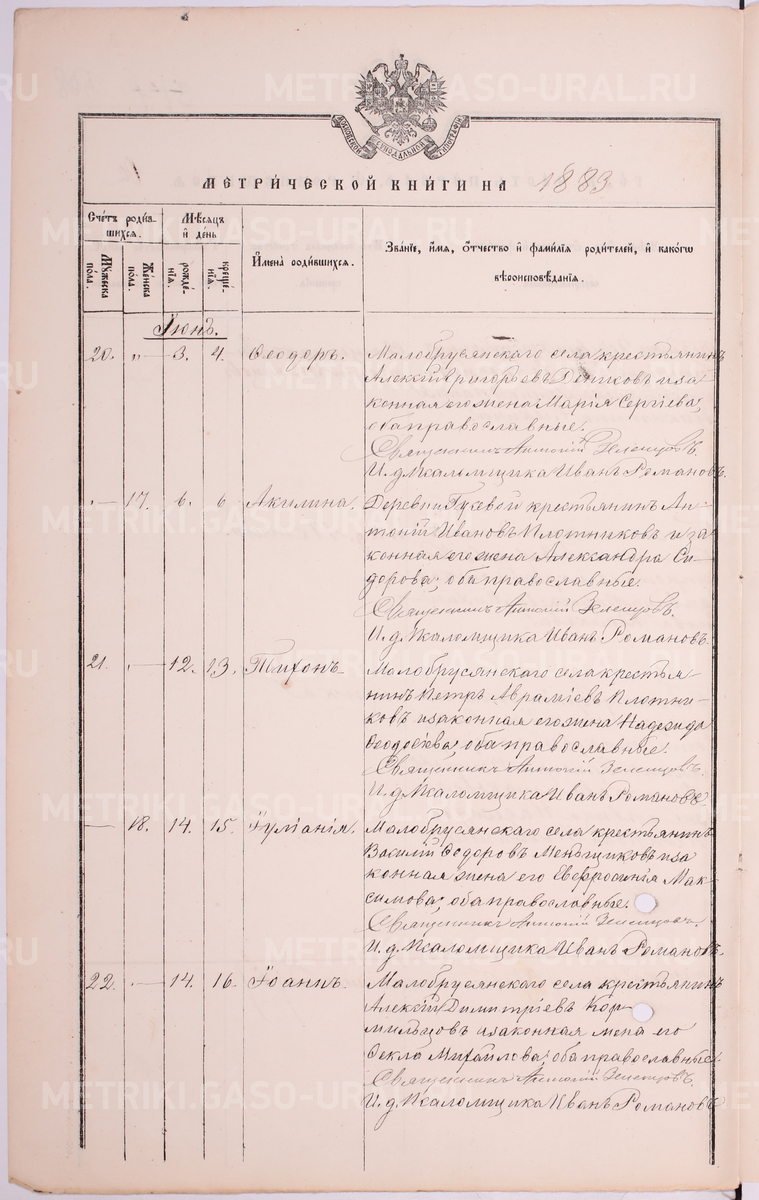 МЕТРИ́ЧЕСКОЙ КНИ́ГИ НА 1883
Сче́тъ роди́вшихся.
Мѣ́сяцъ и́ де́нь
И҆мена̀ роди́вшихся.
Зва́нїе, и҆́мя, ѻ҆́тчество и҆ фами́лїѧ роди́телей, и҆ како́гѡ
вѣроисповѣ́данїѧ.
Му́жеска по́ла.
Же́нска по́ла.
рожде́нїѧ.
креще́нїѧ.
Іюнь.
20. „ 3. 4. Ѳеодоръ. Малобрусянскаго села крестьянинъ
Алексій Григорьевъ и за
конная его жена Марія Сергіева,
оба православные.
Священникъ Антоній Зеленцовъ.
И. д. Псаломщика Иванъ Романовъ.
— 17. 6. 6 Акилина. Деревни Гусевой крестьянинъ Ан-
тоній Ивановъ Плотниковъ и за
конная его жена Александра Си-
дорова, оба православные.
Священникъ Антоній Зеленцовъ.
И. д. Псаломщика Иванъ Романовъ.
21. — 12. 13. Тихонъ. Малобрусянскаго села крестья-
нинъ Петръ Авраміевъ Плотни-
ковъ и законная его жена Надежда
Ѳеодосѣева, оба православные.
Священникъ Антоній Зеленцовъ.
И. д. Псаломщика Иванъ Романовъ.
— 18. 14. 15. Іуліанія. Малобрусянскаго села крестьянинъ
Василій Ѳедоровъ Меньщиковъ и за
конная жена его Евфросинія Мак-
симова, оба православные.
Священникъ Антоній Зеленцовъ.
И. д. Псаломщика Иванъ Романовъ.
22. — 14. 16. Іоаннъ. Малобрусянскаго села крестьянинъ
Алексій Димитріевъ Кор-
мильцовъ и законная жена его
Ѳекла Михайлова, оба православные.
Священникъ Антоній Зеленцовъ.
И. д. Псаломщика Иванъ Романовъ
METRIKI.GASO-URAL.RU